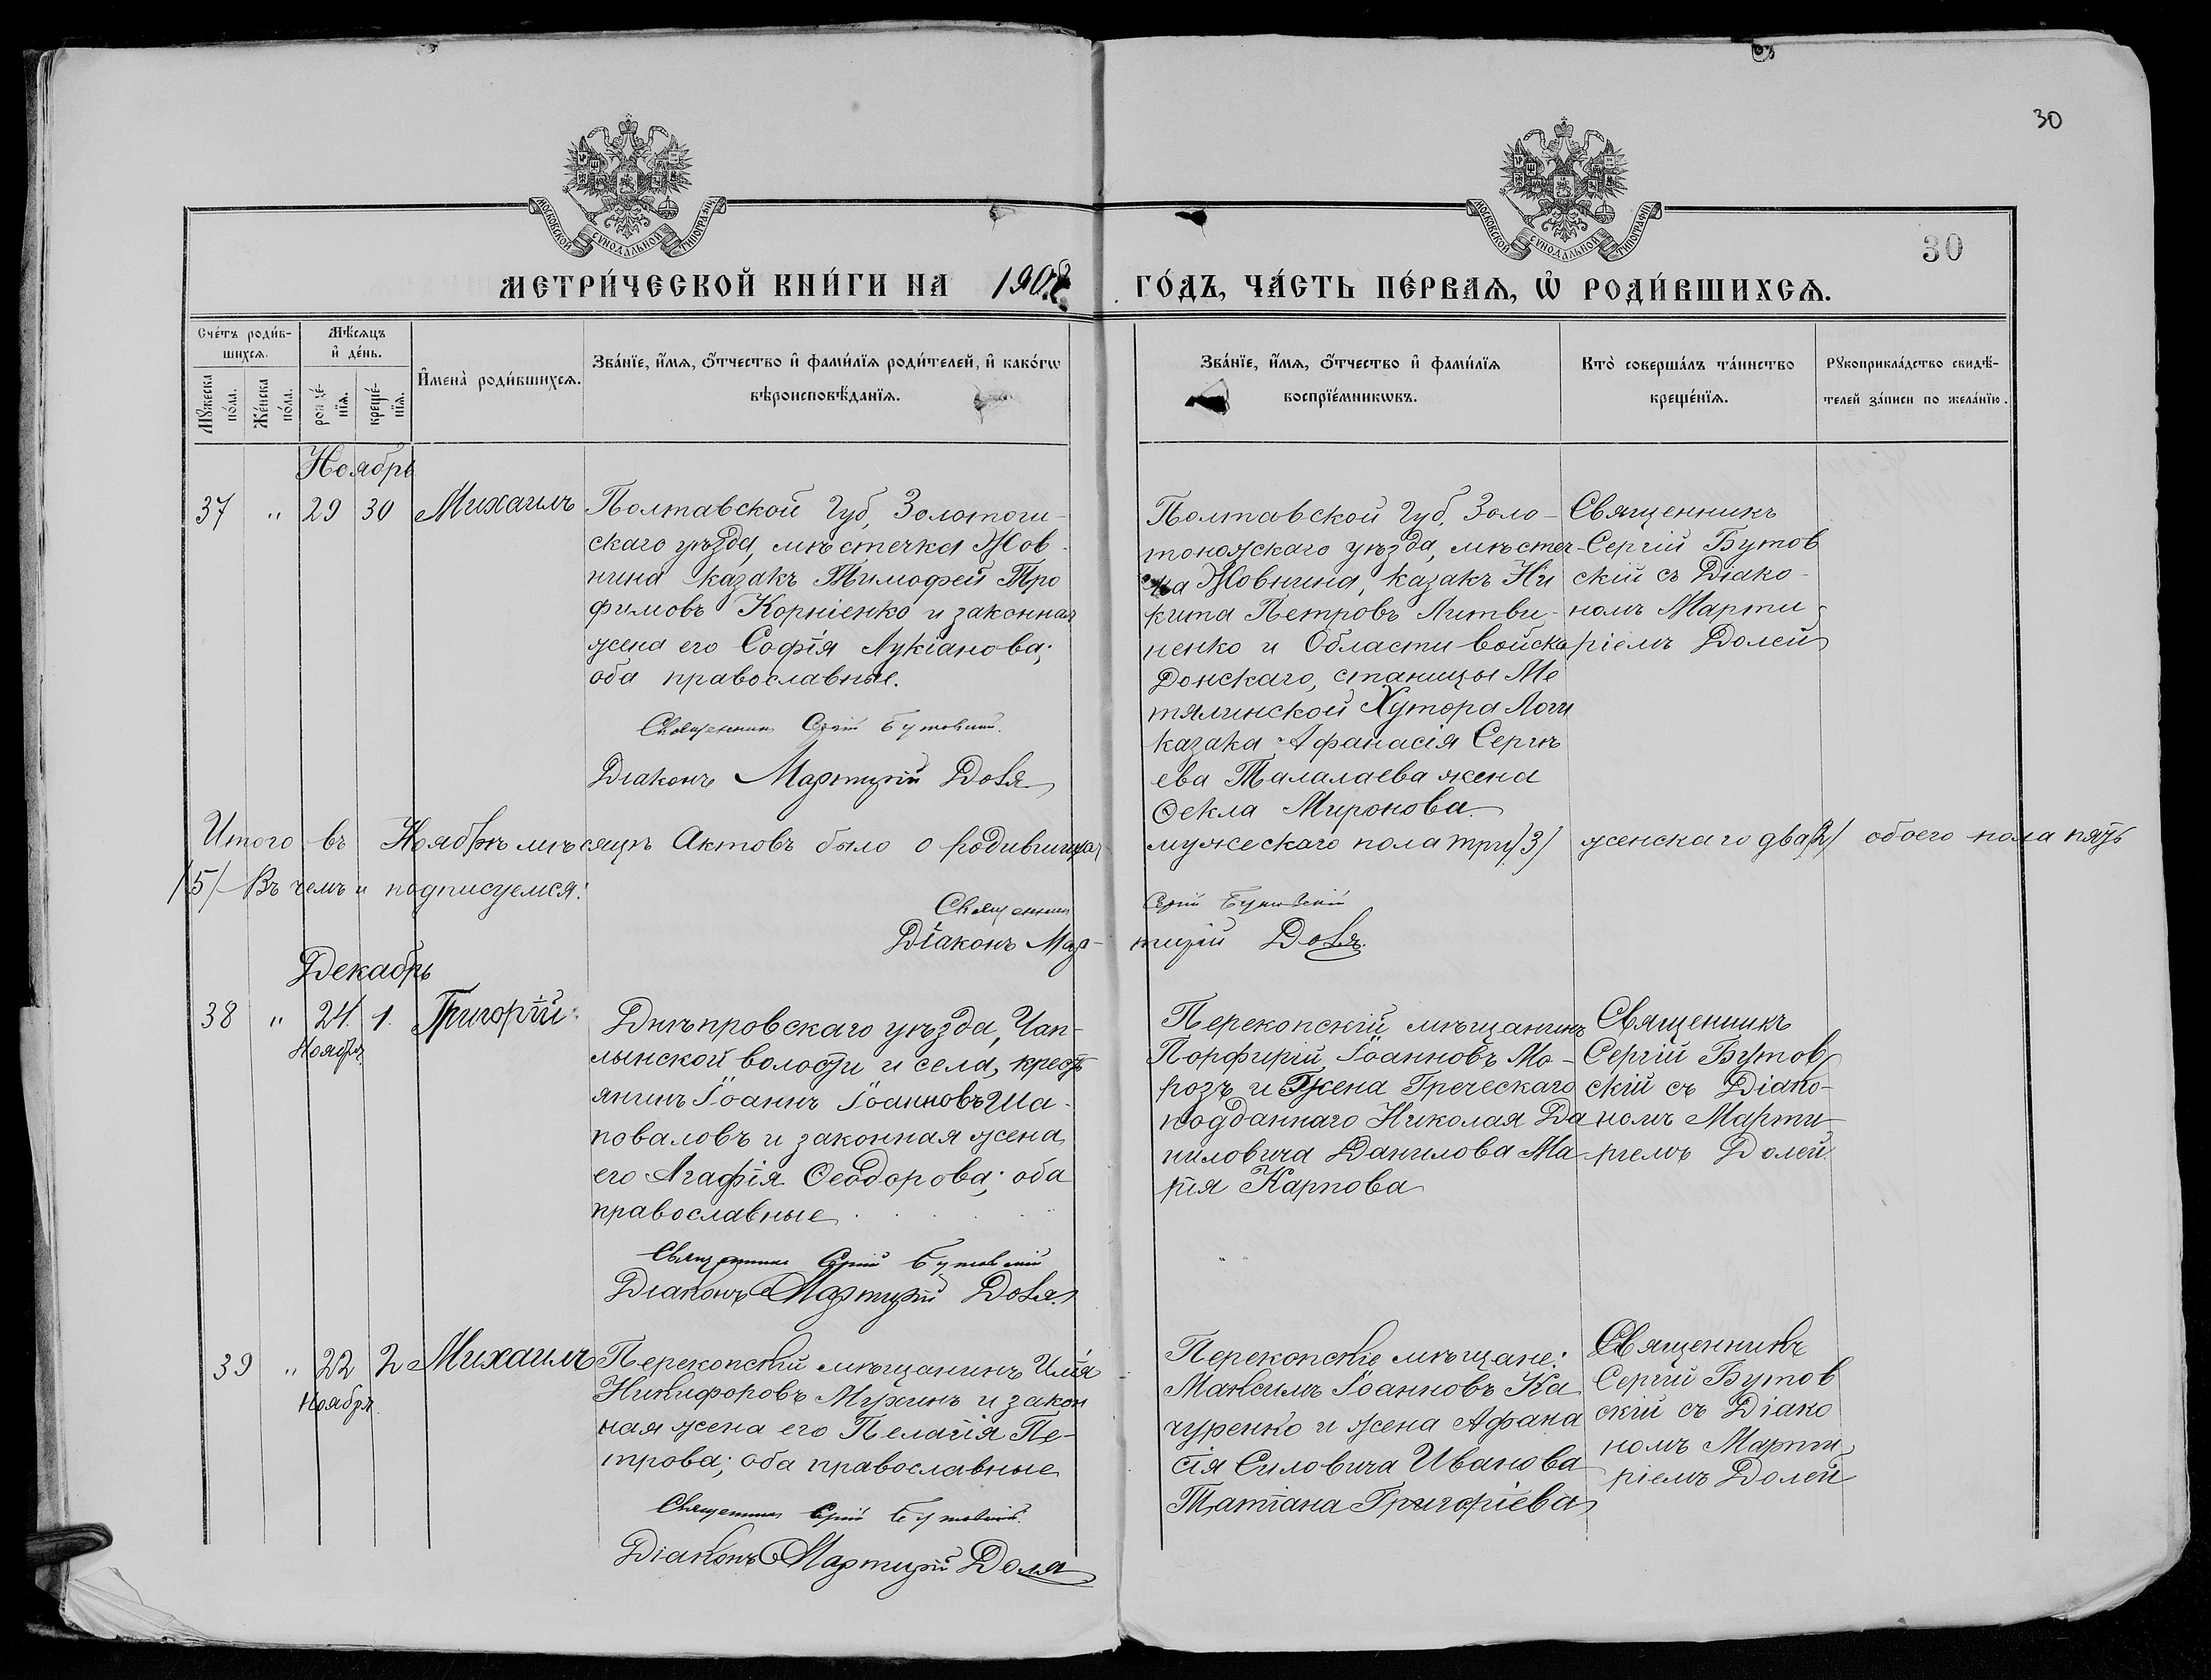 30
МОСКОВСКОЙ СѴНОДАЛЬНОЙ ТИПОГРАФІИ
МОСКОВСКОЙ СѴНОДАЛЬНОЙ ТИПОГРАФІИ
30
МЕТРИ́ЧЕСКОЙ КНИ́ГИ НА 190 ГО́ДЪ, ЧА́СТЬ ПЕ́РВАѦ, Ѡ҆ РОДИ́ВШИХСѦ.
Сче́тъ роди́в-
шихсѧ.
Мꙋ́жеска по́ла.
Же́нска по́ла.
Мѣ́сѧцъ
и҆ де́нь.
рожде́-
нїѧ.
креще́-
нїѧ.
И҆мена̀ роди́вшихсѧ.
Зва́нїе, и҆́мѧ, ѻ҆́тчество и҆ фами́лїѧ роди́телей, и҆ како́гѡ
вѣроисповѣ́данїѧ.
Зва́нїе, и҆́мѧ, ѻ҆́тчество и҆ фами́лїѧ
воспрїе́мникѡвъ.
Кто̀ соверша́лъ та́инство
креще́нїѧ.
Рꙋкоприкла́дство свидѣ́-
телей за́писи по жела́нїю.
Ноябрь
37 " 29 30 Михаилъ
Полтавской Губ, Золотоги-
скаго уѣзда, мѣстечка Жов-
нина казакъ Тимофей Тро
фимовъ Корніенко и законная
жена его Софія Лукіанова;
оба православные.
Священникъ Сергій Бутовскій.
Діаконъ Мартирій Доля
Полтавской Губ, Золо-
тоножскаго уѣзда, мѣстеч-
ка Жовнина, казакъ Ни
кита Петровъ Литви-
ненко и Области войска
Донскаго, станицы Ме
тялинской Хутора Логи
казака Афанасія Сергѣ
ева Талалаева жена
Ѳекла Миронова
Священникъ
Сергій Бутов
скій съ Діако-
номъ Марти-
ріемъ Долей
Итого въ Ноябрѣ мѣсяцѣ Актовъ было о родившихся мужескаго пола три /3/ женскаго два /2/ обоего пола пять
/5/ Въ чемъ и подписуемся:
Священникъ Сергій Бутовскій
Діаконъ Мар-тирій Доля.
Декабрь
38 " 24. 1. Григорій
Ноября
Днѣпровскаго уѣзда, Чап-
лынской волости и села, кресть
янинъ Іоаннъ Іоанновъ Ша-
поваловъ и законная жена
его Агафія Ѳеодорова; оба
православные
Священникъ Сергій Бутовскій
Діаконъ Мартирій Доля.
Перекопскій мѣщанинъ
Порфирій Іоанновъ Мо-
розъ и жена Греческаго
подданнаго Николая Да
ниловича Данилова Ма-
рія Карпова
Священникъ
Сергій Бутов
скій съ Діако-
номъ Марти-
ріемъ Долей.
39 " 22 2 Михаилъ
Ноября
Перекопскій мѣщанинъ Илія
Никифоровъ Мухинъ и закон
ная жена его Пелагія Пе-
трова; оба православные
Священникъ Сергій Бутовскій.
Діаконъ Мартирій Доля
Перекопскіе мѣщане:
Максимъ Іоанновъ Ка
чуренко и жена Афана
сія Силовича Иванова
Татіана Григоріева
Священникъ
Сергій Бутов
скій съ Діако
номъ Марти
ріемъ Долей